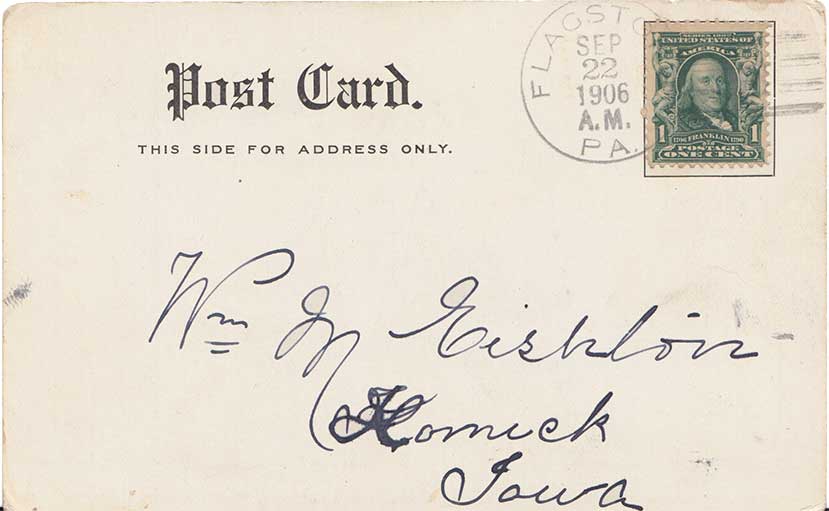 Post Card.
THIS SIDE FOR ADDRESS ONLY.
FLAGST
SEP
22
1906
A.M.
PA.
SERIES 1902
UNITED STATES OF
AMERICA
1 1706 FRANKLIN 1790 1
POSTAGE
ONE CENT
Wm M
Homick
Iowa